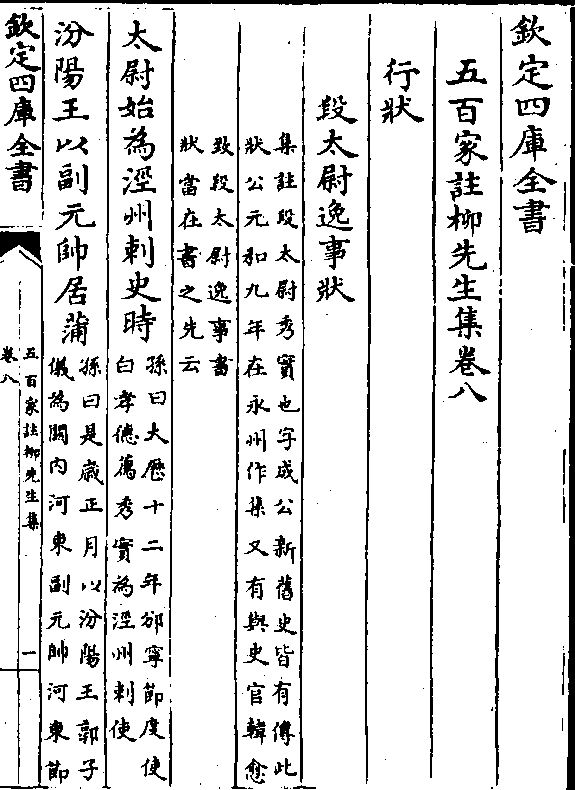 欽定四庫全書
五百家註柳先生集卷八
行狀
段太尉逸事狀
集註段太尉秀實也字成公新舊史皆有傳此
狀公元和九年在永州作集又有與史官韓愈
致段太尉逸事書
狀當在書之先云
太尉始為涇州刺史時
孫曰大歴十二年邠寧節度使
白孝德薦秀實為涇州刺使
汾陽王以副元帥居蒲
孫曰是歲正月以汾陽王郭子
儀為關内河東副元帥河東節
欽定四庫全書
五百家註柳先生集
卷八
一